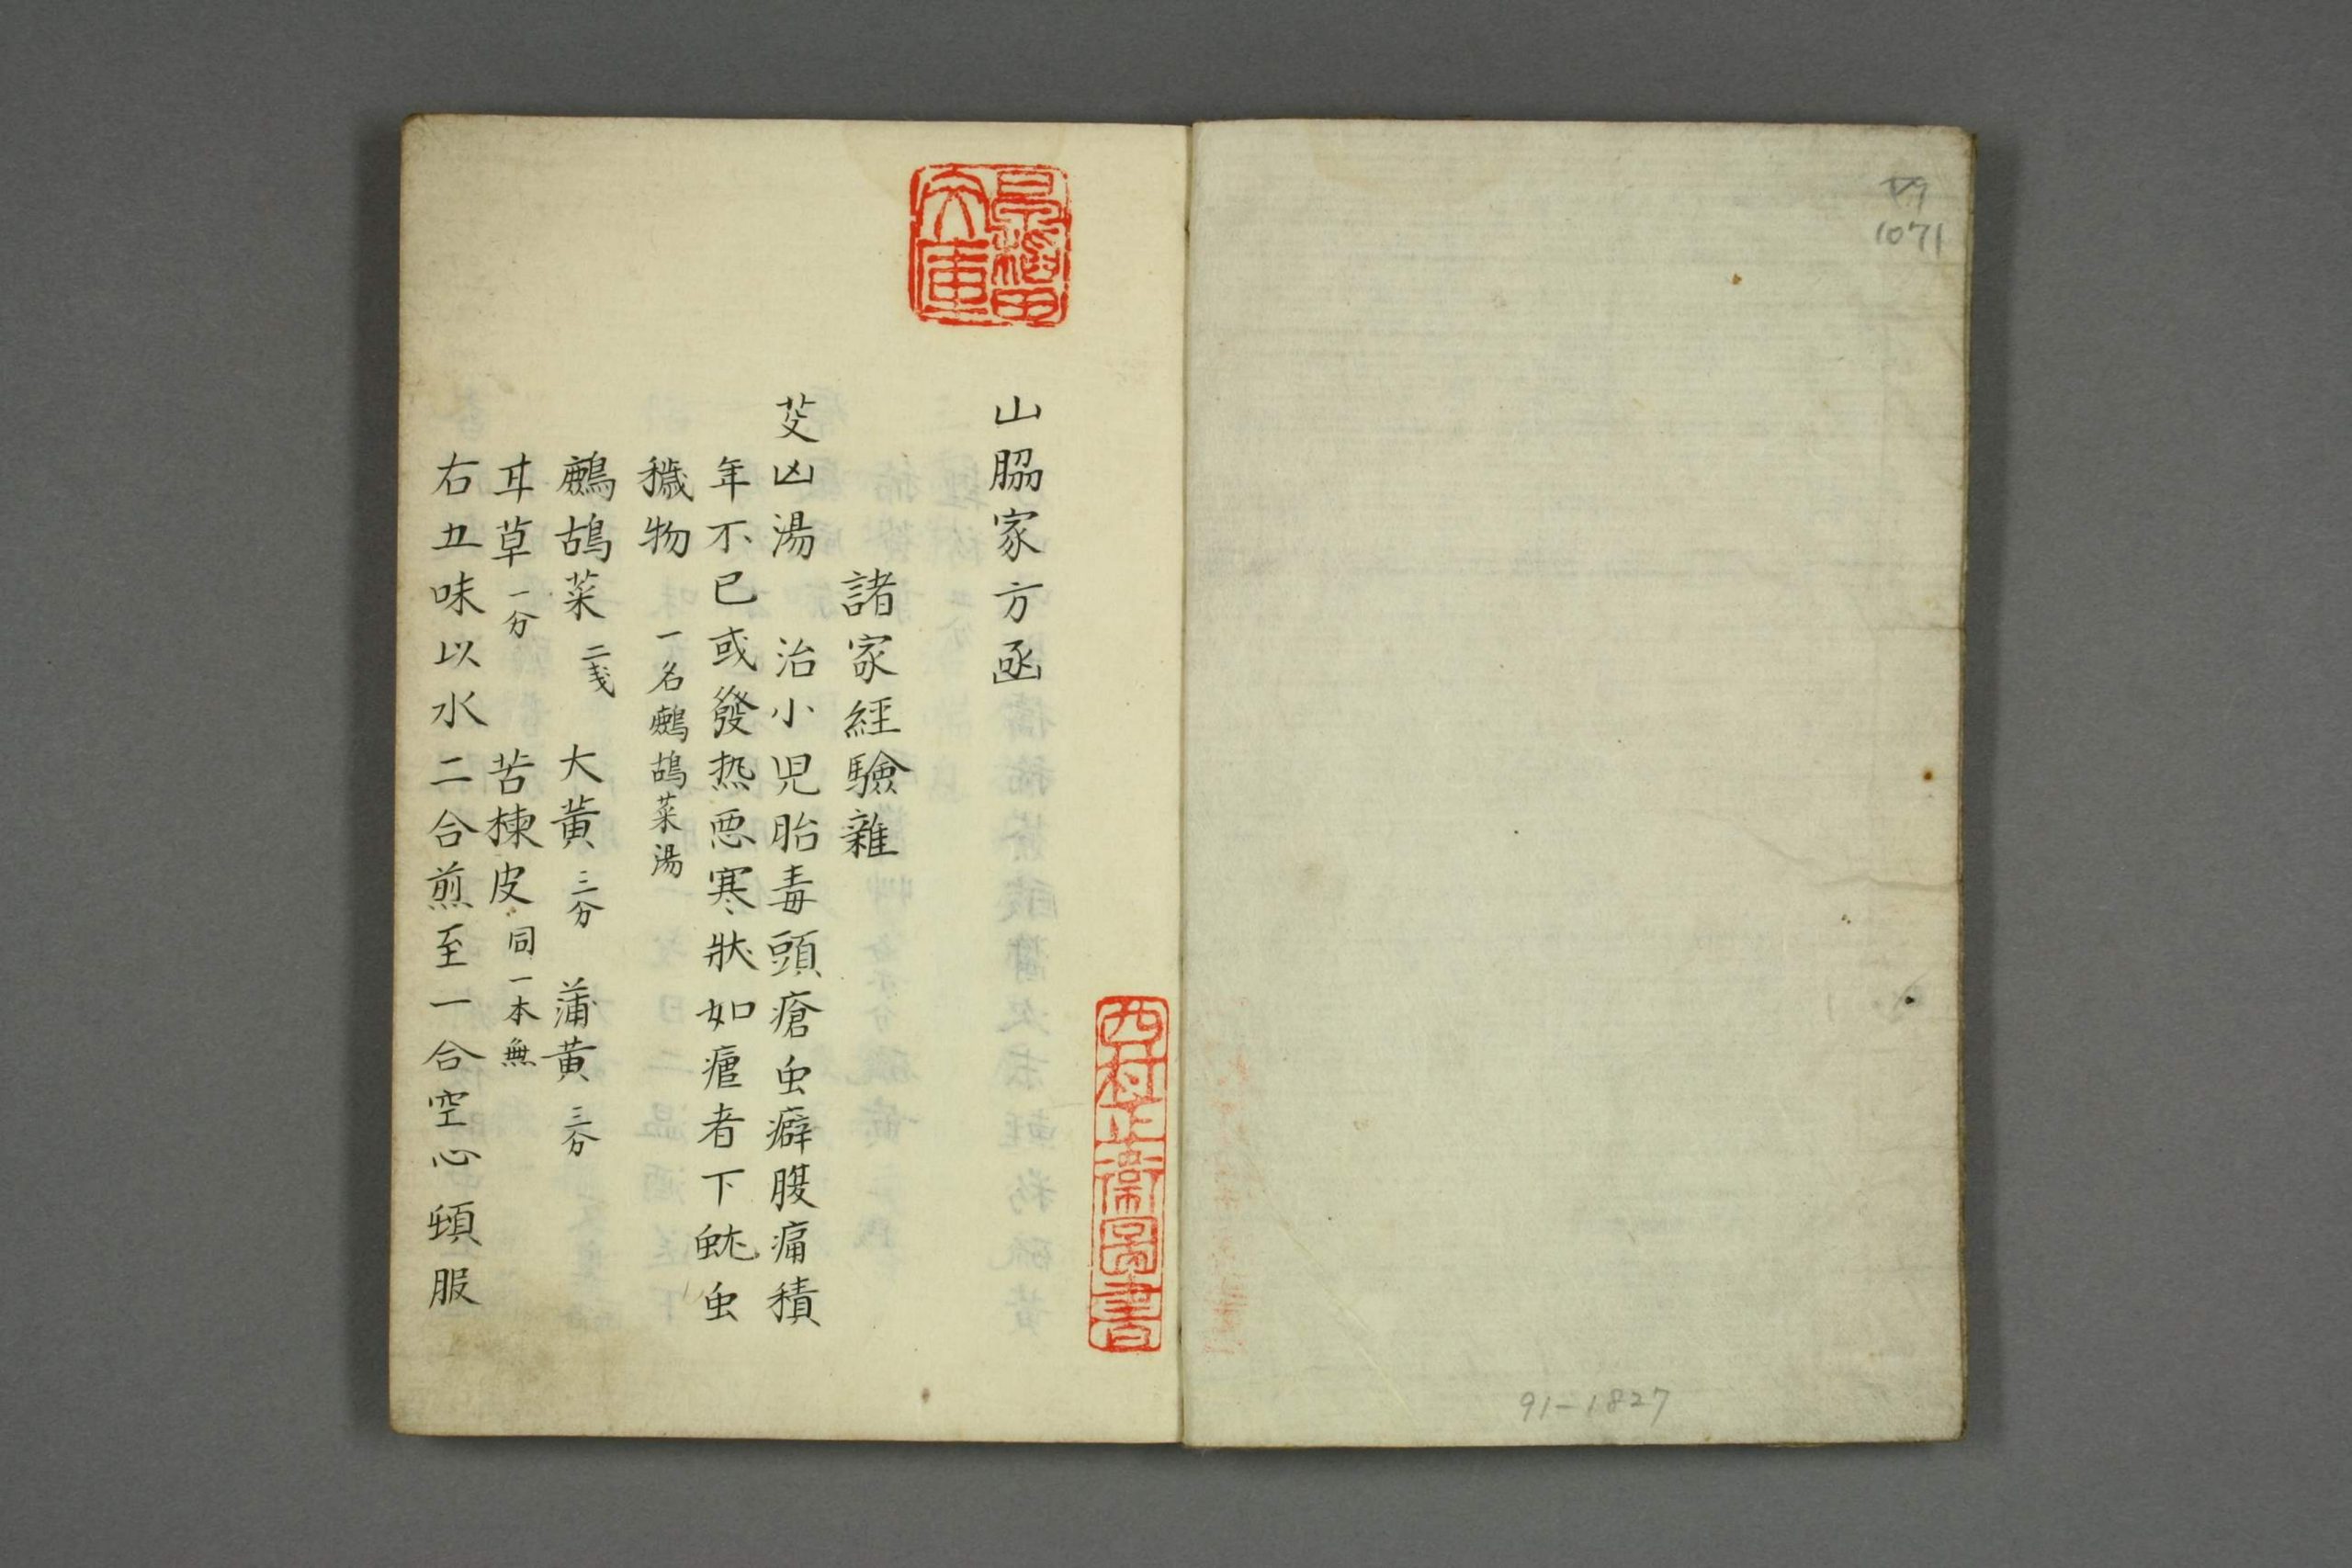 79
1071
91-1827
早稲田文庫
西村兵衛圖書
山脇家方函
諸家経驗雜
芟凶湯 治小児胎毒頭瘡虫癖腹痛積
年不已或發热惡寒狀如瘧者下蚘虫
穢物 一名鷓鴣菜湯
鷓鴣菜 二戔 大黄 三分 蒲黄 三分
甘草 一分 苦楝皮 同一本無
右五味以水二合煎至一合空心頓服